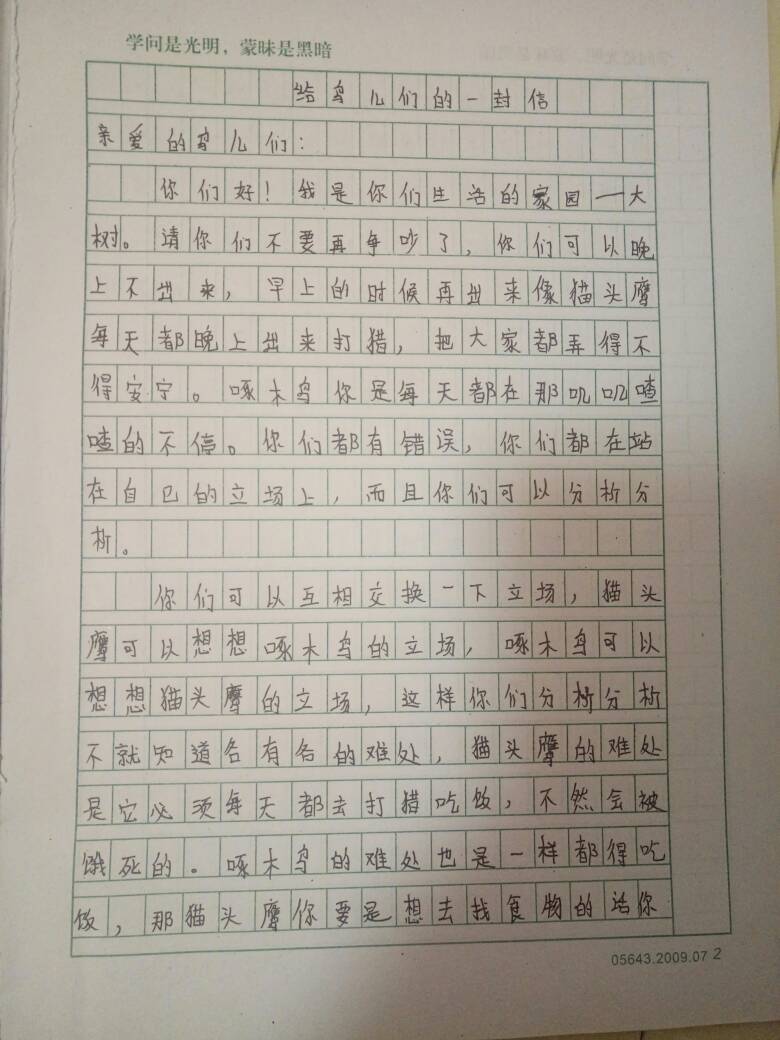 学问是光明，蒙昧是黑暗
给鸟儿们的一封信
亲爱的鸟儿们：
你们好！我是你们生活的家园一大
树。请你们不要再争吵了，你们可以晚
上不出来，早上的时候再出来像猫头鹰
每天都晚上出来打猎，把大家都弄得不
得安宁。啄木鸟你是每天都在那叽叽喳
喳的不停。你们都有错误，你们都在站
在自已的立场上，而且你们可以分析分
析。
你们可以互相交换一下立场，猫头
鹰可以想想啄木鸟的立场，啄木鸟可以
想想猫头鹰的立场，这样你们分析分析
不就知道各有各的难处，猫头鹰的难处
是它必须每天都去打猎吃饭，不然会被
饿死的。啄木鸟的难处也是一样都得吃
饭，那猫头鹰你要是想去找食物的话你
05643.2009.07 2